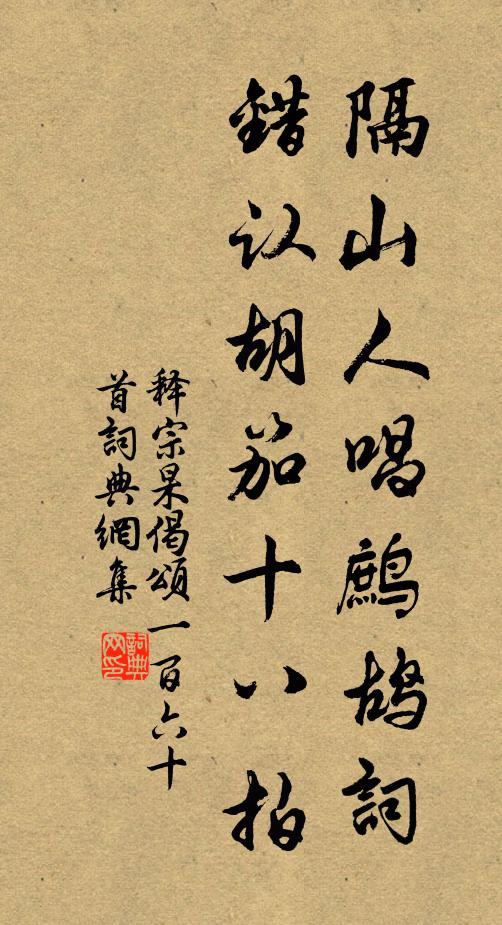 隔山人唱鷓鴣詞
錯认胡笳十八拍
释宗杲偈頌一百六十
首詞典網集
詞典
网印